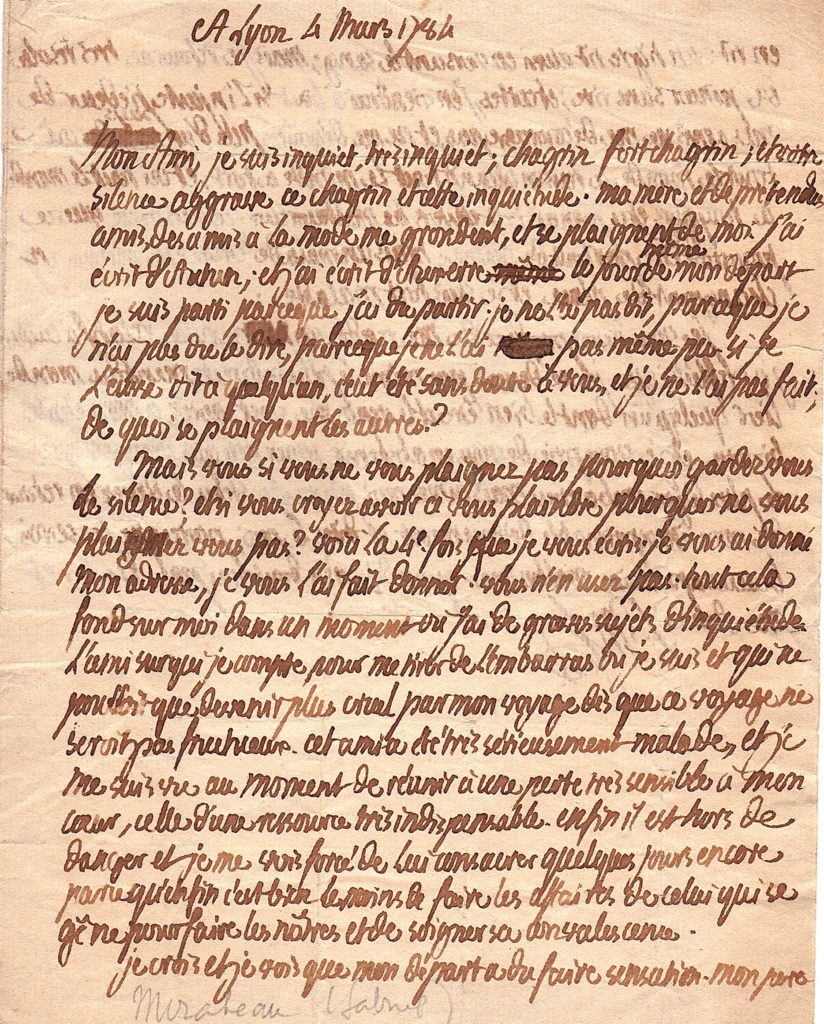 A Lyon 4 Mars 1784
Mon Ami, je suis inquiet, tres inquiet; chagrin fort chagrin; et votre
silence aggrave ce chagrin et cette inquiétude. ma mere et de prétendus
amis, des amis à la mode me grondent, et se plaignent de moi. j'ai
écrit d'Autun, et j'ai écrit d'Auxerre le jour même de mon départ
je suis parti parceque j'ai du partir. je ne l'ai pas dit, parceque je
n'ai pas du le dire, parceque je ne l'ai pas même pu. si je
l'eusse dit à quelqu'un, c'eut été sans doute à vous, et je ne l'ai pas fait;
de quoi se plaignent les autres?
Mais vous si vous ne vous plaignez pas pourquoi gardez vous
le silence? et si vous croyez avoir à vous plaindre pourquoi ne vous
plaignez vous pas? voici la 4e. fois que je vous écris. je vous ai donné
mon adresse, je vous l'ai fait donner. vous n'en usez pas. tout cela
fond sur moi dans un moment où j'ai de grosses sujets d'inquiétude.
L'ami sur qui je compte pour me tirer de l'embarras où je suis et qui ne
pouvoit que devenir plus cruel par mon voyage dès que ce voyage ne
seroit pas fructueux. cet ami a été très sérieusement malade, et je
me suis vu au moment de réunir à une perte très sensible à mon
cœur, celle d'une ressource très indispensable. enfin il est hors de
danger et je me vois forcé de lui consacrer quelques jours encore
parce qu'enfin c'est bien le moins de faire les affaires de celui qui se
gêne pour faire les nôtres et de soigner sa convalescence.
je crois et je vois que mon départ a du faire sensation. mon pere
Mirabeau (Gabriel)